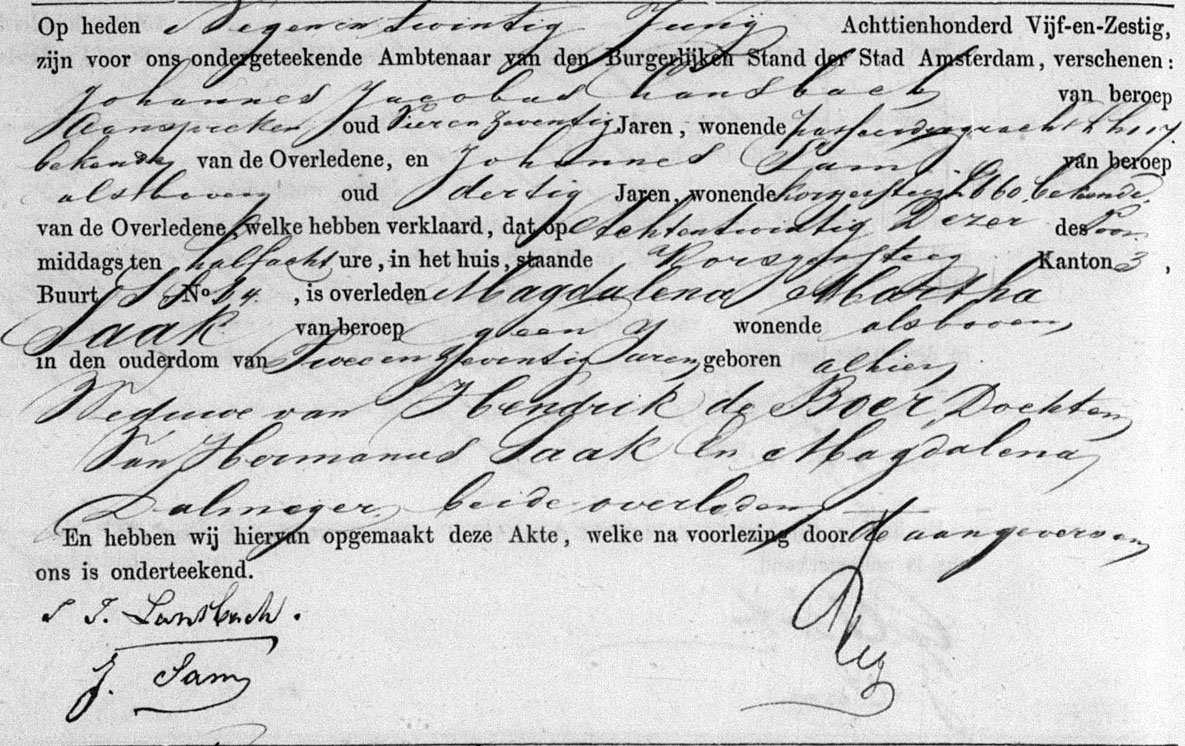 Op heden Negenentwintig Juny Achttienhonderd Vijf-en-Zestig,
zijn voor ons ondergeteekende Ambtenaar van den Burgerlijken Stand der Stad Amsterdam, verschenen:
Johannes Jacobus Lansbach van beroep
Aanspreker oud Vier en Zeventig Jaren, wonende
bekende van de Overledene, en Johannes Sam van beroep
alsboven oud dertig Jaren, wonende Korsjersteeg 60 bekende
van de Overledene, welke hebben verklaard, dat op Achtentwintig Dezer des Voor
middags ten half acht ure, in het huis, staande Korsjersteeg Kanton 3,
Buurt No 24, is overleden Magdalena Martha
Saak van beroep geen wonende alsboven
in den ouderdom van Twee en Zeventig Jaren geboren alhier
Weduwe van Hendrik de Boer, Dochter
Van Hermanus Saak En Magdalena
Dalmeyer beide overleden
En hebben wij hiervan opgemaakt deze Akte, welke na voorlezing door de aangevers en
ons is onderteekend.
J. J. Lansbach.
J. Sam